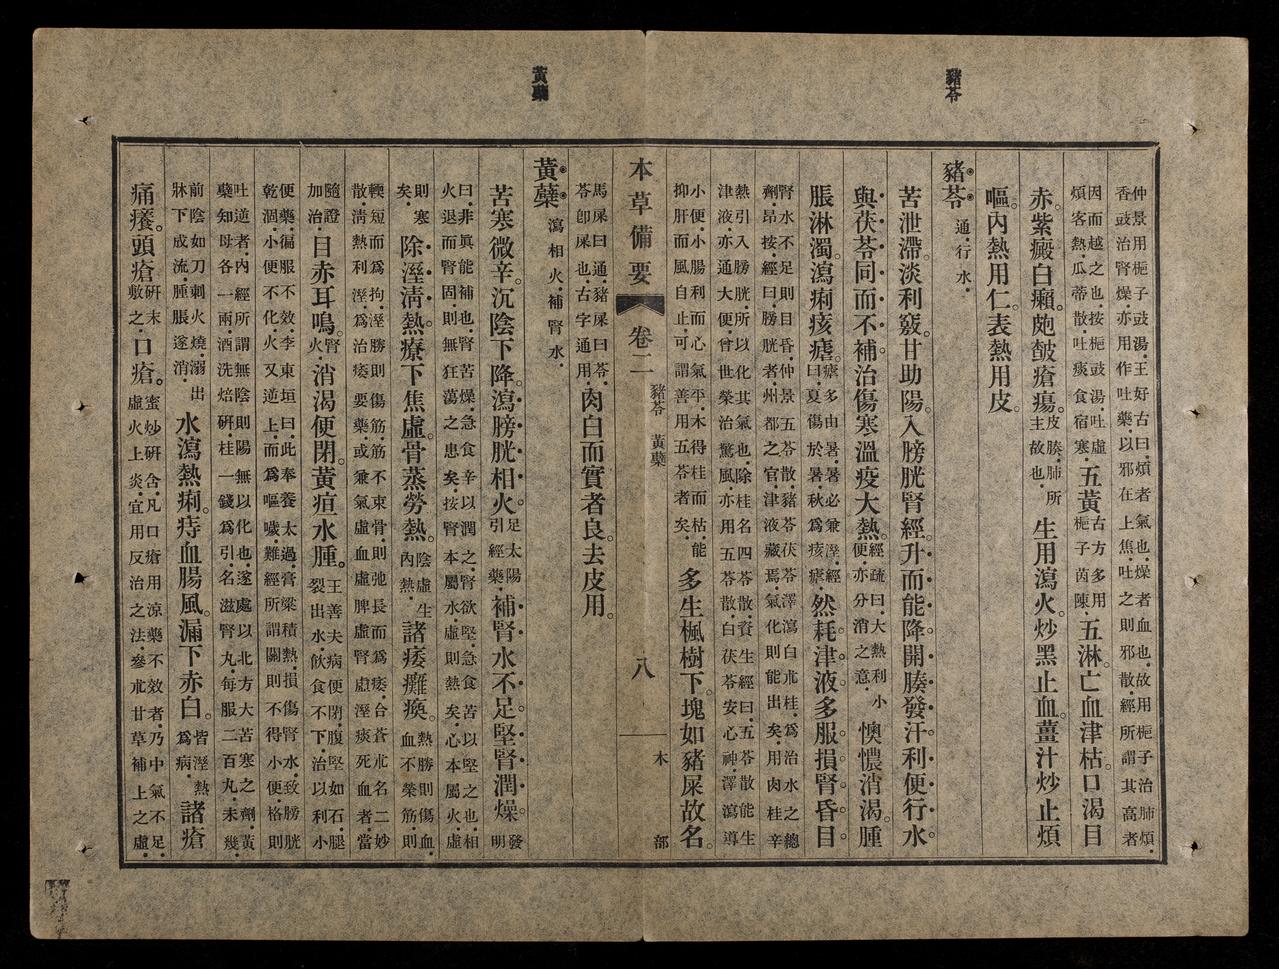 豬苓
黃蘗
仲景用梔子豉湯王好古曰煩者氣也燥者血也故用梔子治肺煩
香豉治腎燥亦用作吐藥以邪在上焦吐之則邪散經所謂其高者
因而越之也按梔豉湯吐虛煩客熱瓜蒂散吐痰食宿寒五黃古方多用梔子茵陳五淋亡血津枯口渴目
赤紫癜白癩皰皶瘡瘍皮腠肺所主故也生用瀉火炒黑止血薑汁炒止煩
嘔內熱用仁表熱用皮
豬苓通行水
苦泄滯淡利竅甘助陽入膀胱腎經升而能降開腠發汗利便行水
與茯苓同而不補治傷寒溫疫大熱經疏曰大熱利小便亦分消之意懊憹消渴腫
脹淋濁瀉痢痎瘧瘧多由暑暑必兼溼經曰夏傷於暑秋為痎瘧然耗津液多服損腎昏目
腎水不足則目昏仲景五苓散豬苓茯苓澤瀉白朮桂為治水之總
劑昂按經曰膀胱者州都之官津液藏焉氣化則能出矣用肉桂辛
熱引入膀胱所以化其氣也除桂名四苓散資生經曰五苓散能生
津液亦通大便曾世榮治驚風亦用五苓散白茯苓安心神澤瀉導
小便小腸利而心氣平木得桂而枯能抑肝而風自止可謂善用五苓者矣多生楓樹下塊如豬屎故名
馬屎曰通豬屎曰苓苓卽屎也古字通用肉白而實者良去皮用
本草備要
卷二
豬苓 黃蘗
八
木部
黃蘗瀉相火補腎水
苦寒微辛沉陰下降瀉膀胱相火足太陽引經藥補腎水不足堅腎潤燥發明
曰非眞能補也腎苦燥急食辛以潤之腎欲堅急食苦以堅之也相
火退而腎固則無狂蕩之患矣按腎本屬水虛則熱矣心本屬火虛
則寒矣除溼淸熱療下焦虛骨蒸勞熱陰虛生內熱諸痿癱瘓熱勝則傷血血不榮筋則
軟短而為拘溼勝則傷筋筋不束骨則弛長而為痿合蒼朮名二妙
散淸熱利溼為治痿要藥或兼氣虛血虛脾虛腎虛溼痰死血者當
隨證加治目赤耳鳴腎火消渴便閉黃疸水腫王善夫病便閉腹堅如石腿裂出水飮食不下治以利小
便藥徧服不效李東垣曰此奉養太過膏粱積熱損傷腎水致膀胱
乾涸小便不化火又逆上而為嘔噦難經所謂關則不得小便格則
吐逆者內經所謂無陰則陽無以化也遂處以北方大苦寒之劑黃
蘗知母各一兩酒洗焙硏桂一錢為引名滋腎丸每服二百丸未幾
前陰如刀刺火燒溺出牀下成流腫脹遂消水瀉熱痢痔血腸風漏下赤白皆溼熱為病諸瘡
痛癢頭瘡硏末敷之口瘡蜜炒硏含凡口瘡用涼藥不效者乃中氣不足虛火上炎宜用反治之法參朮甘草補上之虛